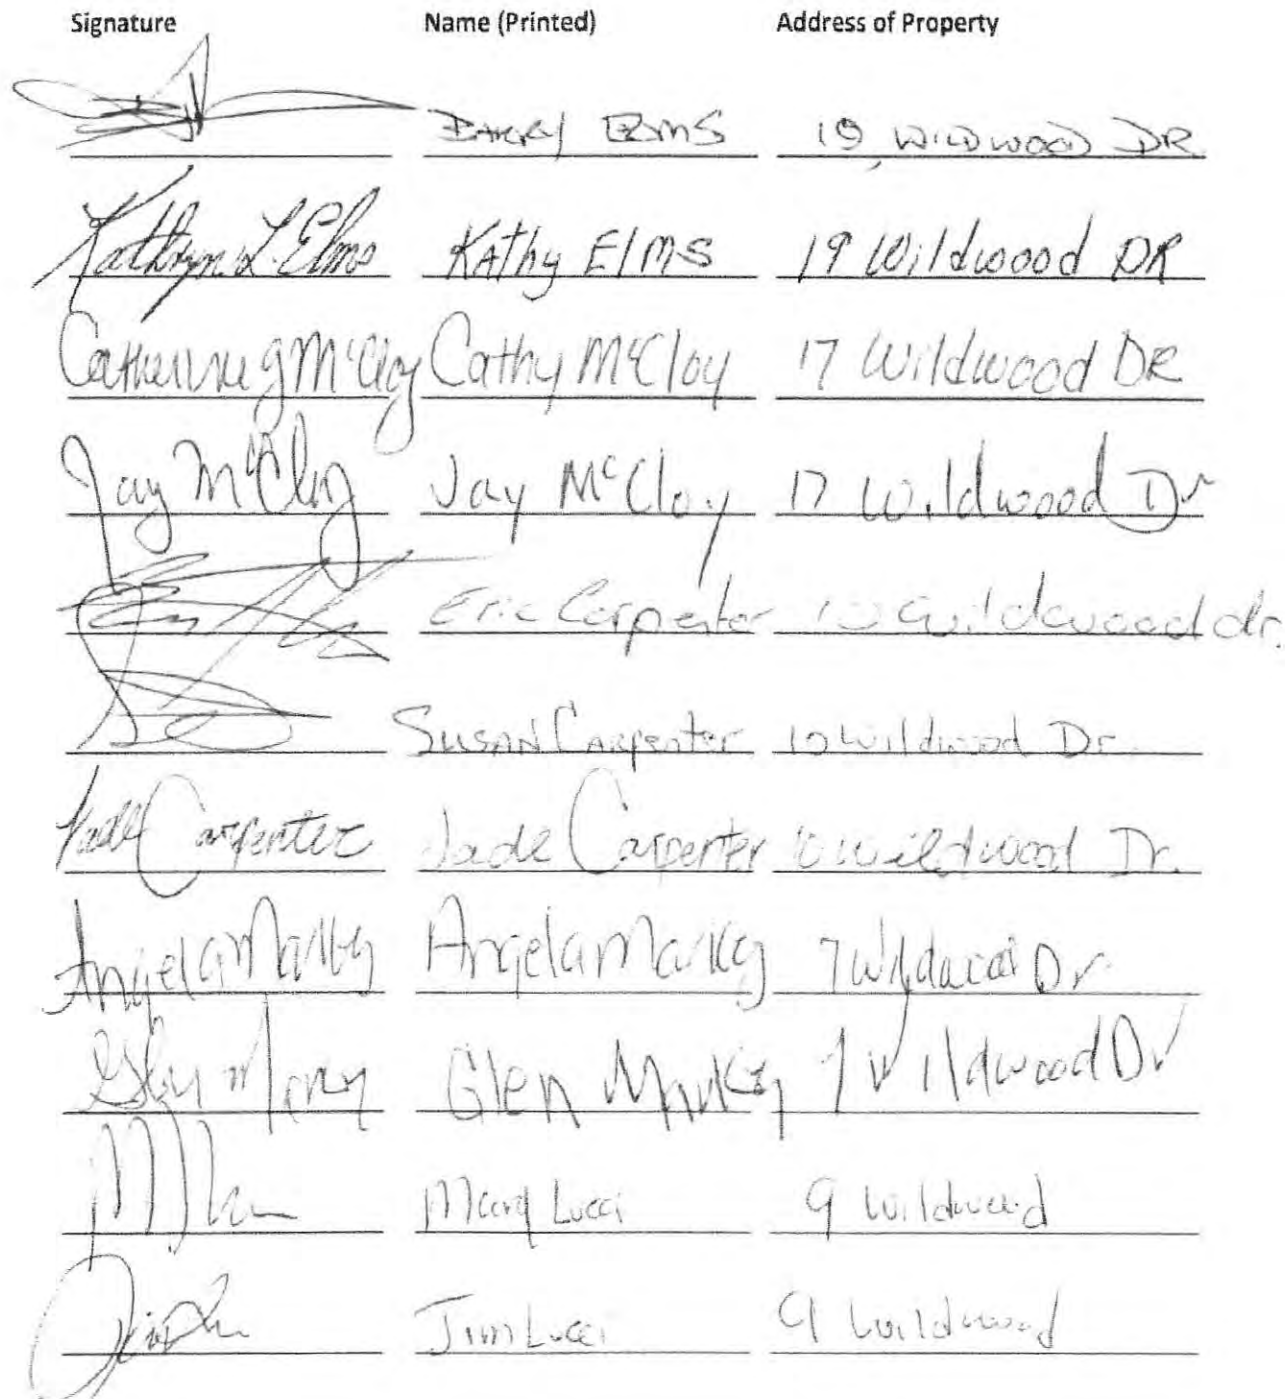 Signature Name (Printed) Address of Property
BARRY ELMS 19 WILDWOOD DR
Kathryn L. Elms KAthy ElmS 19 Wildwood DR
Catherine g McCloy Cathy McCloy 17 Wildwood DR
Jay McCloy Jay McCloy 17 Wildwood Dr
Eric Carpenter 10 Wildwood dr.
SUSAN CARpenter 10 Wildwood Dr.
Jade Carpenter Jade Carpenter 10 Wildwood Dr.
Angela Angela 7 Wildwood Dr
Glen 7 Wildwood Dr
Mary Lucci 9 Wildwood
Jim Lucci 9 Wildwood